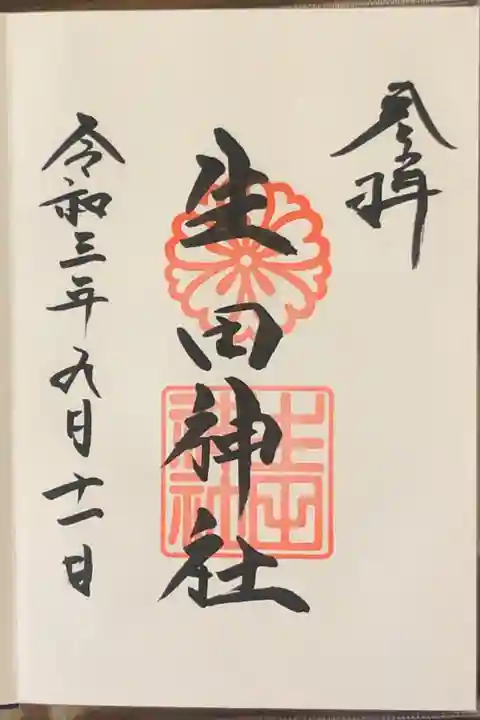 奉拝
生田神社
令和三年九月十一日
生田神社